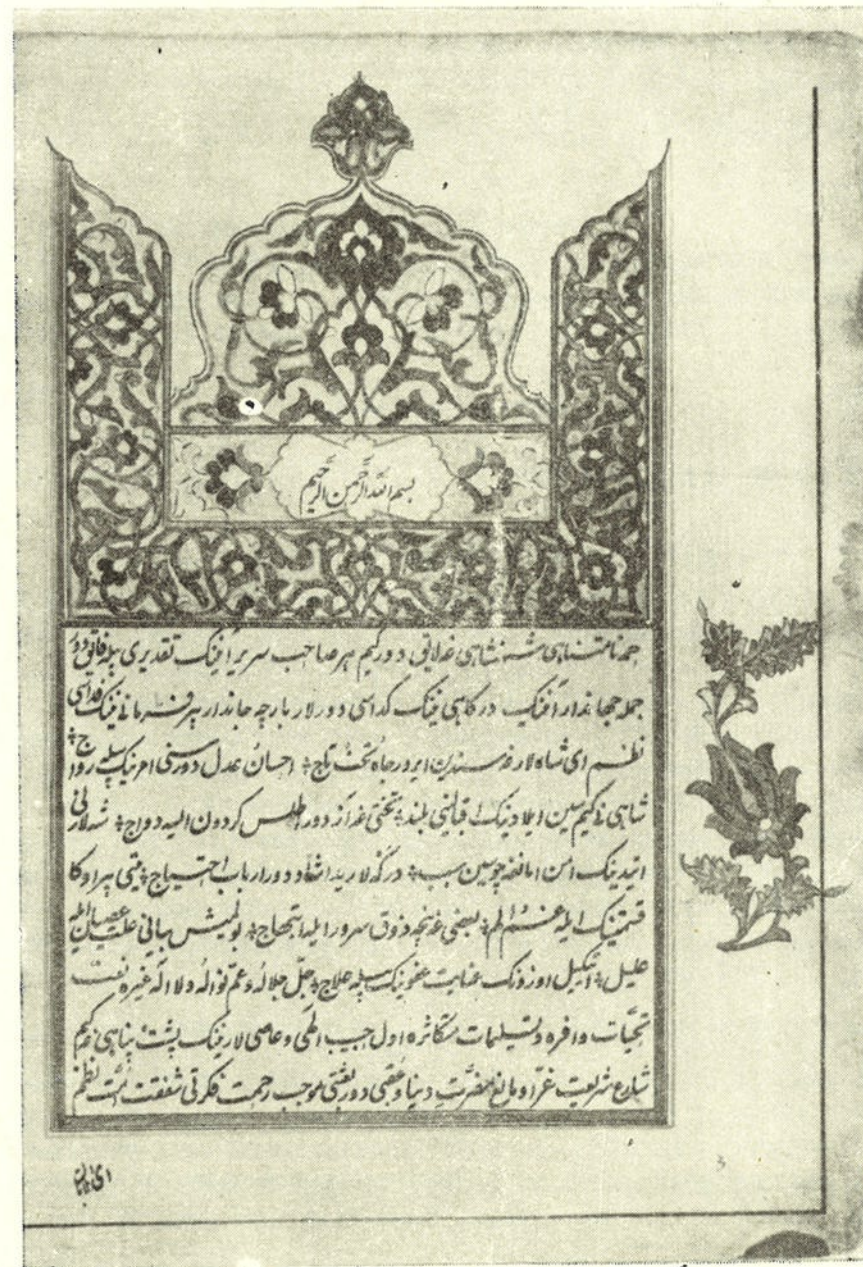 بسم الله الرحمن الرحيم
حمد نامتناهی شهنشاهی غه لایق دور کیم هر صاحب سریر آنینک تقدیری بیله فایق دور
جمله جهاندار آنینک درکاهی نینک کداسی دورلار بارچه جاندار بیر فرمانی نینک فداسی
نظم ای شاه لارغه سندین ایرور جاه تخت تاج احسان عدل دور سنی امرینک بیله رواج
شاهی نی کیم سین ایلادینک اقبالنی بلند تختی غه آز دور اطلس کردون الیسه دواج شه لارنی
ایتدینک امن امانغه چو سین سبب درکه لاریدا شاد دور ارباب احتیاج یتی بیراوکا
قسمتینک ایله غم الم بعضی غه نیجه ذوق سرور ایله ابتهاج بولمیش بیانی علت عصیان ایله
علیل اتکیل اوزونک عنایت عفوینک بیله علاج جل جلاله وعم نواله ولا اله غیره نعت
تحیات وافره و تسلیمات متکاثره اول حبیب الهی وعاصی لارنینک پشت پناهی غه کیم
شارع شریعت غرا و مانع مضرت دنیا و عقبی دور بعثتی موجب رحمت فکرتی شفقت امت نظم
3